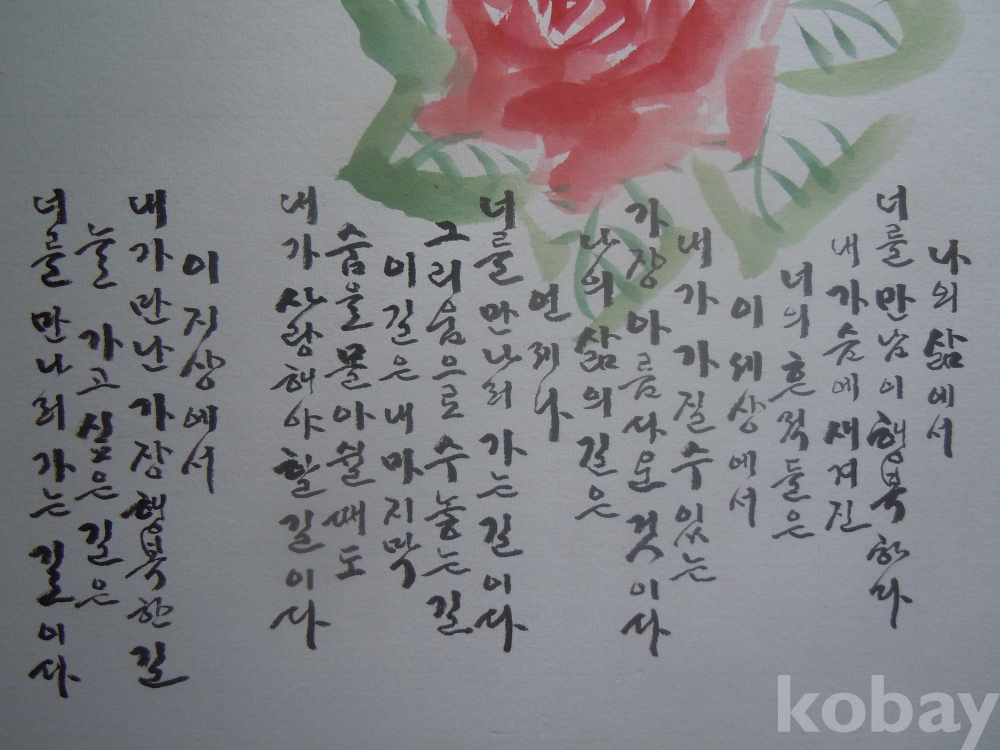 나의 삶에서
너를 만남이 행복하다
내 가슴에 새겨진
너의 흔적들은
이 세상에서
내가 가질수 있는
가장 아름다운 것이다
나의 삶의 길은
언제나
너를 만나러 가는 길이다
그리움으로 수놓는 길
이 길은 내 마지막
숨을 몰아쉴 때도
내가 사랑해야할 길이다
이 지상에서
내가 만난 가장 행복한 길
늘 가고 싶은 길은
너를 만나러 가는 길이다
kobay